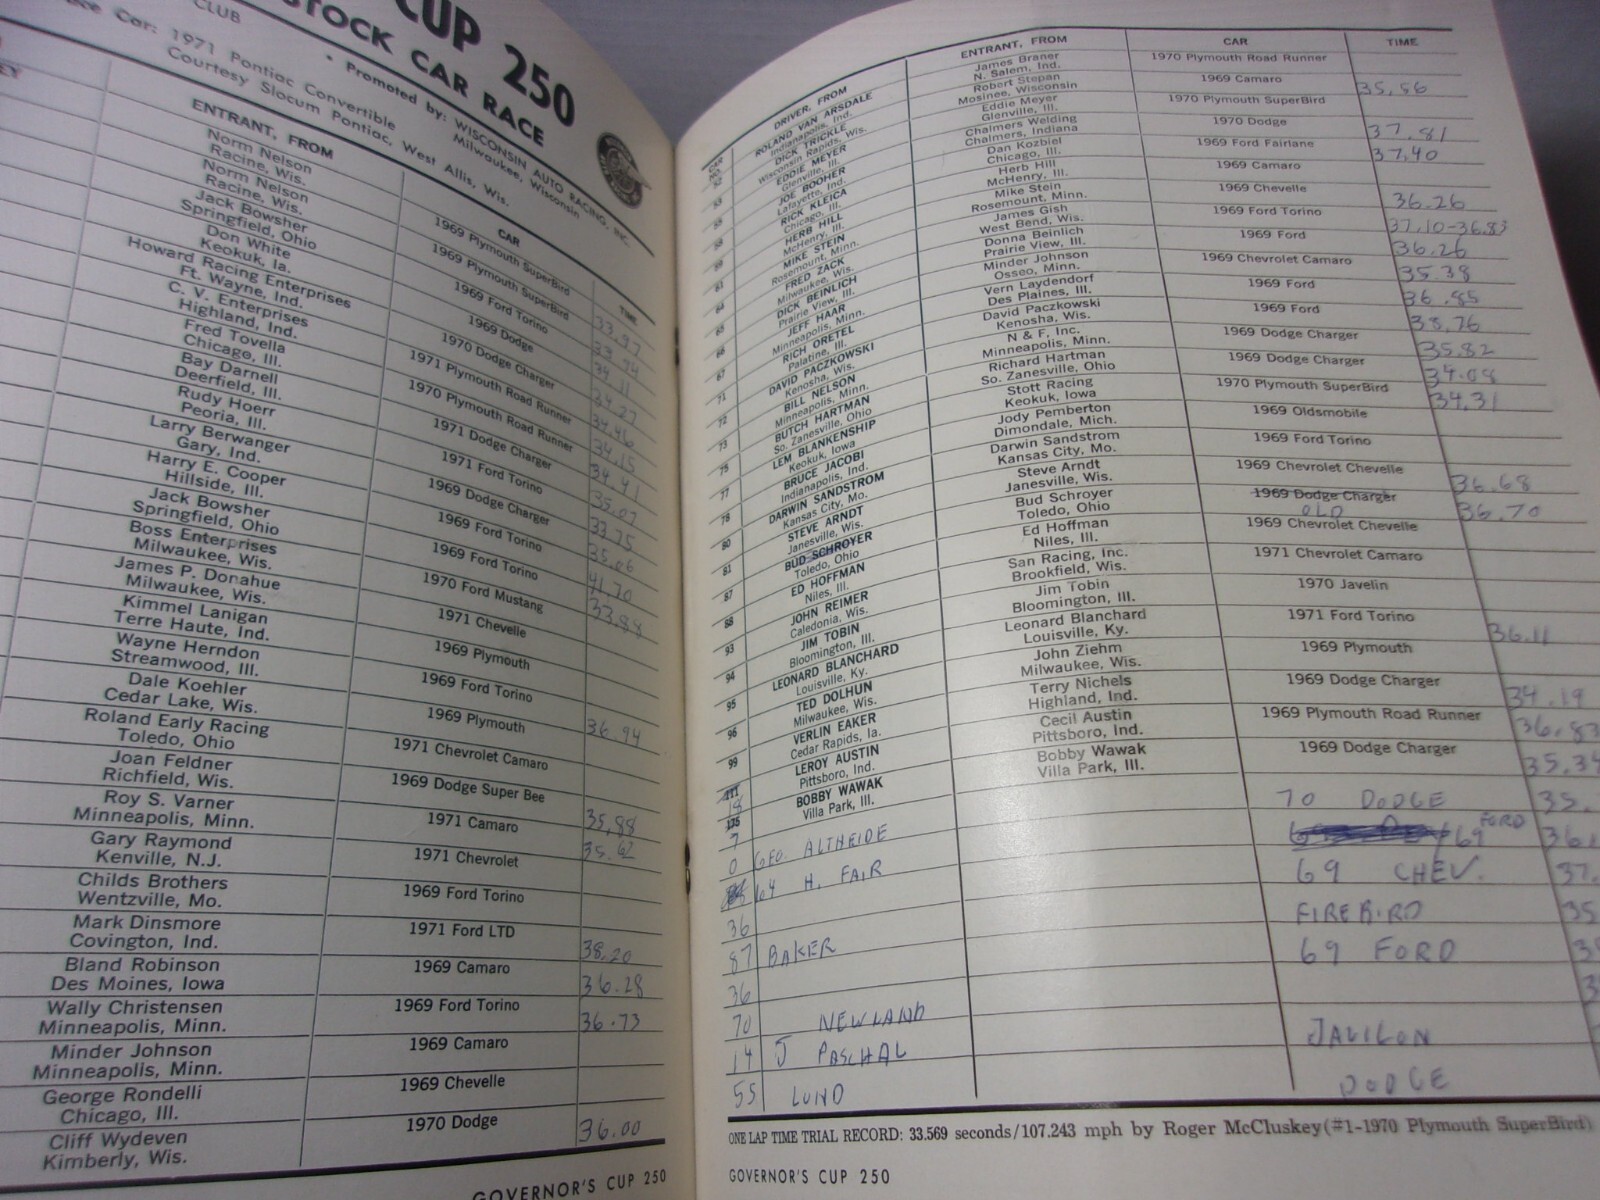 CUP 250
STOCK CAR RACE
CLUB • Promoted by: WISCONSIN AUTO RACING, INC.
Car: 1971 Pontiac Convertible Milwaukee, Wisconsin
Courtesy Slocum Pontiac, West Allis, Wis.
ENTRANT, FROM CAR TIME
Norm Nelson 1969 Plymouth SuperBird 33.97
Racine, Wis.
Norm Nelson 1969 Plymouth SuperBird
Racine, Wis.
Jack Bowsher 1969 Ford Torino 34.11
Springfield, Ohio
Don White 1969 Dodge 34.27
Keokuk, Ia.
Howard Racing Enterprises 1970 Dodge Charger 34.46
Ft. Wayne, Ind.
C. V. Enterprises 1971 Plymouth Road Runner 34.15
Highland, Ind.
Fred Tovella 1970 Plymouth Road Runner 34.41
Chicago, Ill.
Bay Darnell 1971 Dodge Charger 35.07
Deerfield, Ill.
Rudy Hoerr 1971 Ford Torino 33.75
Peoria, Ill.
Larry Berwanger 1969 Dodge Charger 35.06
Gary, Ind.
Harry E. Cooper 1969 Ford Torino 41.70
Hillside, Ill.
Jack Bowsher 1969 Ford Torino 33.88
Springfield, Ohio
Boss Enterprises 1970 Ford Mustang
Milwaukee, Wis.
James P. Donahue 1971 Chevelle
Milwaukee, Wis.
Kimmel Lanigan 1969 Plymouth
Terre Haute, Ind.
Wayne Herndon 1969 Ford Torino
Streamwood, Ill.
Dale Koehler 1969 Plymouth 36.94
Cedar Lake, Wis.
Roland Early Racing 1971 Chevrolet Camaro
Toledo, Ohio
Joan Feldner 1969 Dodge Super Bee
Richfield, Wis.
Roy S. Varner 1971 Camaro 35.88
Minneapolis, Minn.
Gary Raymond 1971 Chevrolet 35.62
Kenville, N.J.
Childs Brothers 1969 Ford Torino
Wentzville, Mo.
Mark Dinsmore 1971 Ford LTD 38.20
Covington, Ind.
Bland Robinson 1969 Camaro 36.28
Des Moines, Iowa
Wally Christensen 1969 Ford Torino 36.73
Minneapolis, Minn.
Minder Johnson 1969 Camaro
Minneapolis, Minn.
George Rondelli 1969 Chevelle
Chicago, Ill.
Cliff Wydeven 1970 Dodge 36.00
Kimberly, Wis.
GOVERNOR'S CUP 250
CAR NO. DRIVER, FROM ENTRANT, FROM CAR TIME
52 ROLAND VAN ARSDALE James Braner 1970 Plymouth Road Runner
Indianapolis, Ind. N. Salem, Ind.
DICK TRICKLE Robert Stepan 1969 Camaro 35.56
Wisconsin Rapids, Wis. Mosinee, Wisconsin
53 EDDIE MEYER Eddie Meyer 1970 Plymouth SuperBird
Glenville, Ill. Glenville, Ill.
JOE BOOHER Chalmers Welding 1970 Dodge 37.81
Lafayette, Ind. Chalmers, Indiana
55 RICK KLEICA Dan Kozbiel 1969 Ford Fairlane 37.40
Chicago, Ill. Chicago, Ill.
HERB HILL Herb Hill 1969 Camaro
McHenry, Ill. McHenry, Ill.
MIKE STEIN Mike Stein 1969 Chevelle 36.26
Rosemount, Minn. Rosemount, Minn.
61 FRED ZACK James Gish 1969 Ford Torino 37.10-36.83
Milwaukee, Wis. West Bend, Wis.
64 DICK BEINLICH Donna Beinlich 1969 Ford 36.26
Prairie View, Ill. Prairie View, Ill.
65 JEFF HAAR Minder Johnson 1969 Chevrolet Camaro 35.38
Minneapolis, Minn. Osseo, Minn.
66 RICH ORETEL Vern Laydendorf 1969 Ford 36.85
Palatine, Ill. Des Plaines, Ill.
67 DAVID PACZKOWSKI David Paczkowski 1969 Ford 38.76
Kenosha, Wis. Kenosha, Wis.
71 BILL NELSON N & F, Inc. 1969 Dodge Charger 35.82
Minneapolis, Minn. Minneapolis, Minn.
72 BUTCH HARTMAN Richard Hartman 1969 Dodge Charger 34.08
So. Zanesville, Ohio So. Zanesville, Ohio
73 LEM BLANKENSHIP Stott Racing 1970 Plymouth SuperBird 34.31
Keokuk, Iowa Keokuk, Iowa
75 BRUCE JACOBI Jody Pemberton 1969 Oldsmobile
Indianapolis, Ind. Dimondale, Mich.
77 DARWIN SANDSTROM Darwin Sandstrom 1969 Ford Torino
Kansas City, Mo. Kansas City, Mo.
78 STEVE ARNDT Steve Arndt 1969 Chevrolet Chevelle 36.68
Janesville, Wis. Janesville, Wis.
80 BUD SCHROYER Bud Schroyer 1969 Dodge Charger OLD 36.70
Toledo, Ohio Toledo, Ohio
81 ED HOFFMAN Ed Hoffman 1969 Chevrolet Chevelle
Niles, Ill. Niles, Ill.
87 JOHN REIMER San Racing, Inc. 1971 Chevrolet Camaro
Caledonia, Wis. Brookfield, Wis.
88 JIM TOBIN Jim Tobin 1970 Javelin
Bloomington, Ill. Bloomington, Ill.
93 LEONARD BLANCHARD Leonard Blanchard 1971 Ford Torino 36.11
Louisville, Ky. Louisville, Ky.
94 TED DOLHUN John Ziehm 1969 Plymouth
Milwaukee, Wis. Milwaukee, Wis.
95 VERLIN EAKER Terry Nichels 1969 Dodge Charger 34.19
Cedar Rapids, Ia. Highland, Ind.
96 LEROY AUSTIN Cecil Austin 1969 Plymouth Road Runner 36.83
Pittsboro, Ind. Pittsboro, Ind.
99 BOBBY WAWAK Bobby Wawak 1969 Dodge Charger 35.34
Villa Park, Ill. Villa Park, Ill.
111
18
175
7 70 DODGE 35.
0 GEO. ALTHEIDE 69 FORD 36.1
64 H. FAIR 69 CHEV. 37.
36 FIREBIRD 35
87 BAKER 69 FORD
36
70 NEWLAND
14 J PASCHAL JAVILON
55 LUND DODGE
ONE LAP TIME TRIAL RECORD: 33.569 seconds/107.243 mph by Roger McCluskey (#1-1970 Plymouth SuperBird)
GOVERNOR'S CUP 250